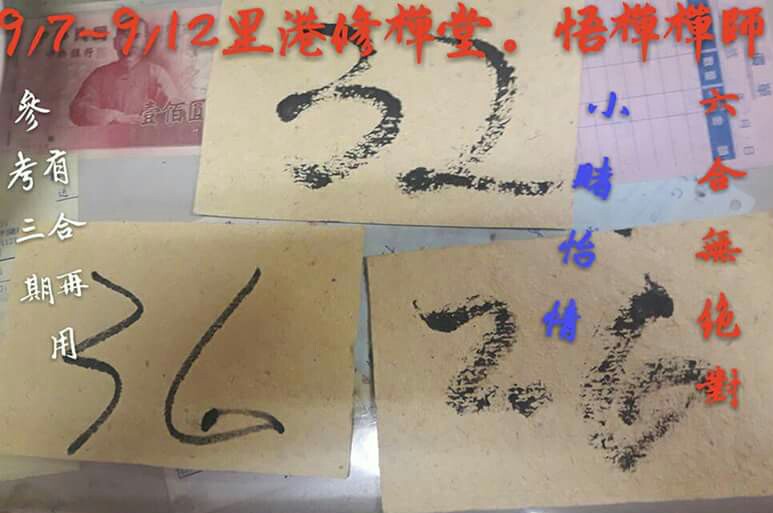 9/7~9/12里港修樺堂。悟樺樺師
壹佰圓
32
36
26
參考三期
有合再用
小賭怡情
六合無絕對